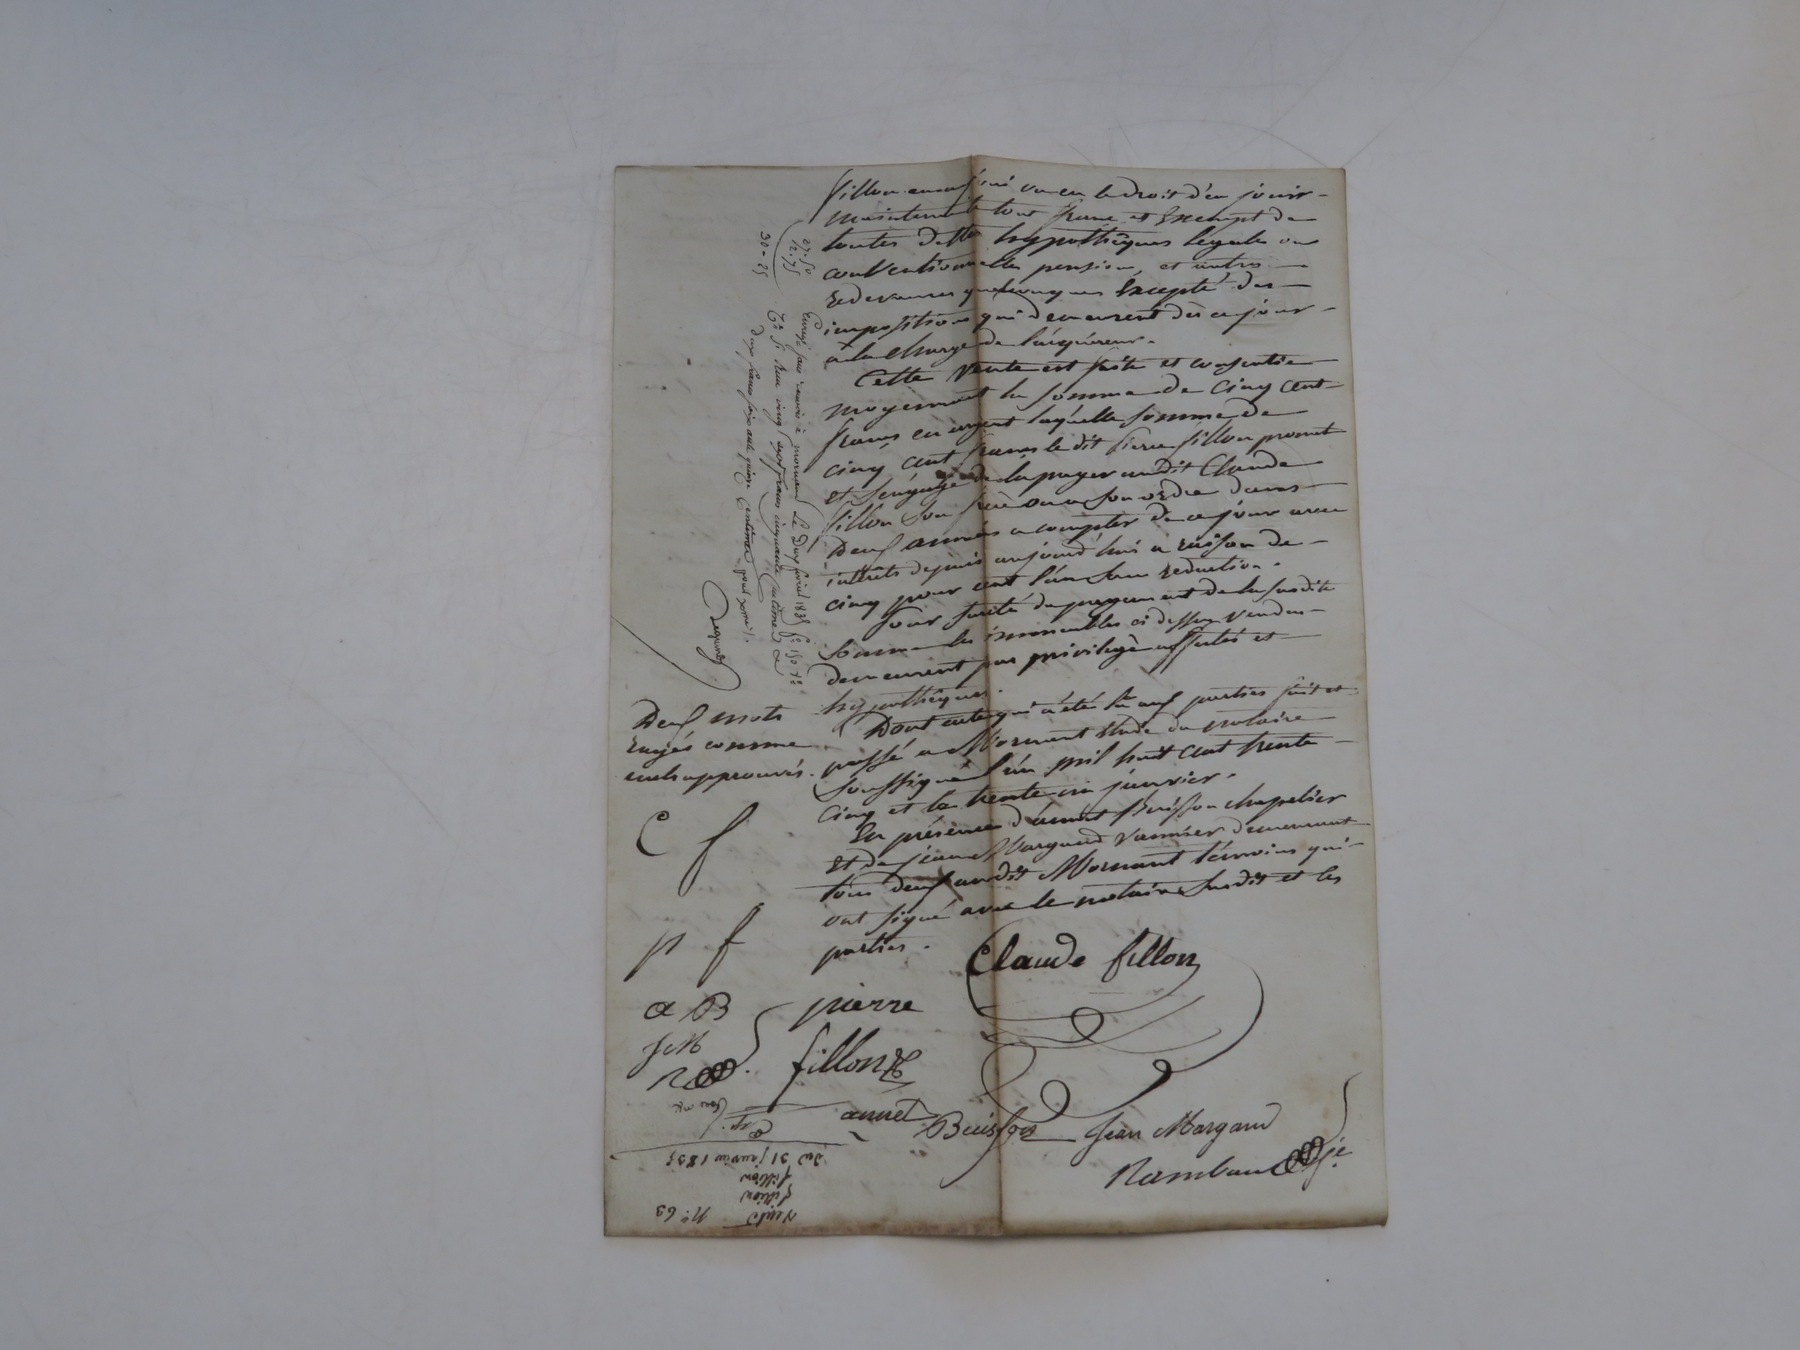 fillon vu en le droit d'en jouir
maintenant le tout franc et Exempt de
toutes dettes hypothèques legales ou
conventionnelles pension, et autres
redevances quelconques Excepté des
impositions qui demeurent dès ce jour
à la charge de l'acquéreur.
Cette vente est faite et consentie
moyennant la somme de cinq cent
francs en argent laquelle somme de
cinq cent francs le dit pierre fillon promet
et s'engage de la payer audit Claude
fillon son frère ou a son ordre dans
deux années a compter de ce jour avec
intérêts depuis aujourd'hui a raison de
cinq pour cent l'an sans reduction.
Pour sureté du payement de la susdite
somme les immeubles ci dessus vendus
demeurent par privilège affectés et
hypothéqués.
Dont acte qui a été lu aux parties fait et
passé a Mornant Etude du notaire
soussigné l'an mil huit cent trente
cinq et le trente un janvier.
En présence d'annet Buisson chapelier
et de jean Margaud vannier demeurant
tous deux audit Mornant témoins qui
ont signé avec le notaire susdit et les
parties.
Deux mots
rayés comme
nuls approuvés.
C f
p f
a B
J M
R
Claude fillon
pierre
fillon
annet Buisson
Jean Margaud
Rambaud
27-50
2,75
30-25
Enregé sans renvoi à mornant Le Dix février 1835 fo 150 Vo
Reçu vingt sept francs cinquante centimes &
Dixe francs soixante quinze centimes
No 69
Vente
fillion
fillion
du 31 janvier 1835